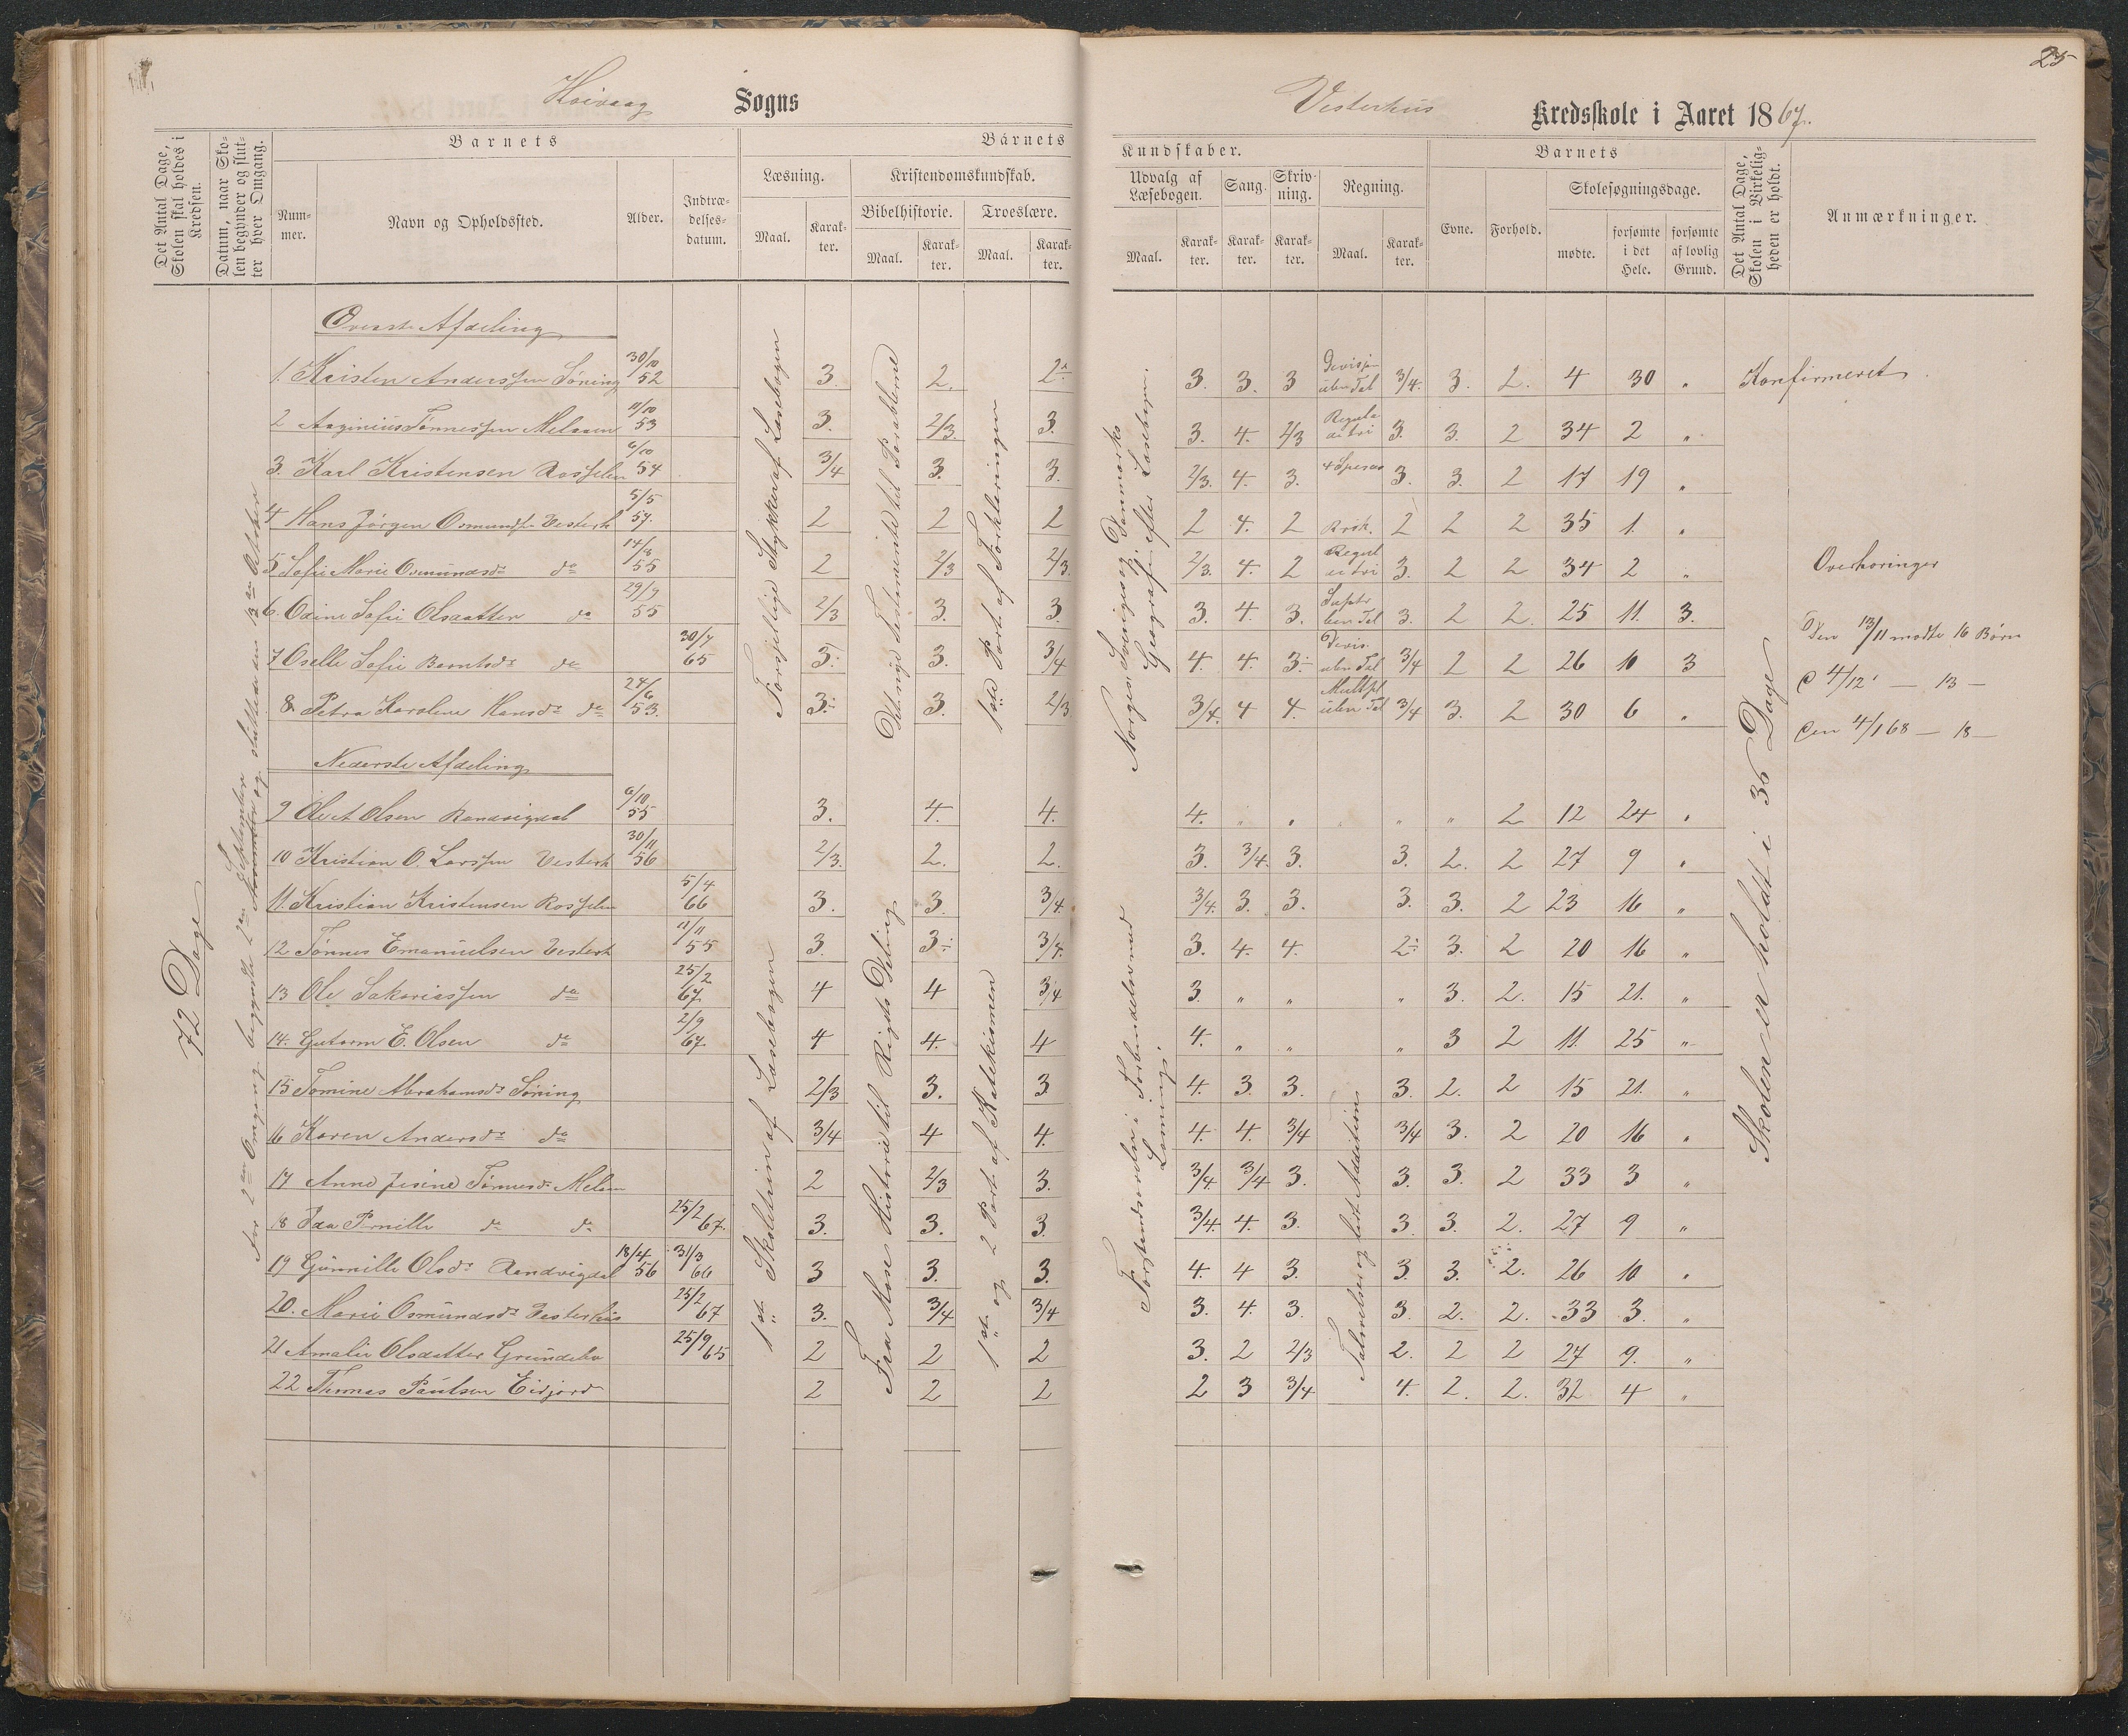 25
Høivaag Sogns
Vesterhus Kredsskole i Aaret 1867.
Det Antal Dage, Skolen skal holdes i Kredsen.
Datum, naar Skolen begynder og slutter hver Omgang.
Barnets
Nummer.
Navn og Opholdssted.
Alder.
Indtrædelsesdatum.
Barnets
Læsning.
Maal.
Karakter.
Kristendomskundskab.
Bibelhistorie.
Maal.
Karakter.
Troeslære.
Maal.
Karakter.
Kundskaber.
Udvalg af Læsebogen.
Maal.
Karakter.
Sang.
Karakter.
Skrivning.
Karakter.
Regning.
Maal.
Karakter.
Barnets
Evne.
Forhold.
Skolesøgningsdage.
mødte.
forsømte i det Hele.
forsømte af lovlig Grund.
Det Antal Dage, Skolen i Virkeligheden er holdt.
Anmærkninger.
72 Dage
Øverste Afdeling
1. Kristen Anderssen Søning 30/10 52 3. 2. 2 3. 3. 3 3/4. 3. 2. 4 30 „ Konfirmeret.
2 Tønnessen 11/10 53 3. 2/3. 3. 3. 4. 2/3 3. 3. 2 34 2 „
3. Karl Kristensen Rosselen 6/10 54 3/4 3. 3. 2/3. 4. 3. 3. 3. 2 17 19 „
4 Hans Jørgen Osmunds. Vesterh 5/5 57. 2 2 2 2 4. 2 2 2 2 35 1. „
5 Sofie Marie Osmundsdr do 14/8 55 2 2/3 2/3. 2/3. 4. 2 3. 2 2 34 2 „
6. Odine Sofie Olsdatter do 29/9 55 2/3 3. 3. 3. 4. 3. 3. 2 2. 25 11. 3.
7 Oselle Sofie Berntsdr do 30/7 65 3. 3. 3/4 4. 4. 3. 3/4 2 2 26 10 3
8 Petra Karoline Hansdr do 24/6 53. 3. 3. 2/3 3/4. 4 4. 3/4 3. 2 30 6 „
Nederste Afdeling
9 Ole A Olsen Randvigdal 6/10 55 3. 4. 4. 4. „ „ „ „ 2 12 24 „
10 Kristian O. Larssen Vesterh 30/11 56 2/3. 2. 2. 3. 3/4. 3. 3. 2. 2 27 9 „
11. Kristian Kristensen Rosselen 5/4 66 3. 3. 3/4. 3/4. 3. 3. 3. 3. 2 23 16 „
12 Tønnes Emanuelsen Vesterh 11/11 55 3. 3 3/4. 3. 4. 4. 2 3. 2 20 16 „
13 Ole Sakariassen do 25/2 67. 4 4 3/4 3. „ „ „ 3. 2. 15 21. „
14. Gutorm E. Olsen do 2/9 67. 4 4. 4 4. „ „ „ 3 2 11. 25 „
15 Tomine Abrahamsdr Søning 2/3 3. 3 4. 3 3. 3. 2. 2 15 21. „
16 Karen Andersdr do 3/4 4 4. 4. 4. 3/4 3/4 3. 2 20 16 „
17 Anne Jesine Tønnesdr Melaen 2 2/3 3. 3/4. 3/4 3. 3. 3. 2 33 3 „
18 Ida Pernille do do 25/2 67. 3. 3. 3. 3/4. 4. 3. 3 3. 2. 27 9 „
19 Gunnille Olsdr Randvigdal 18/4 56 31/3 66 3 3. 3. 4. 4 3. 3. 3. 2. 26 10 „
20. Marie Osmundsdr Vesterhus 25/2 67 3. 3/4 3/4 3. 4. 3. 3. 2. 2. 33 3. „
21 Amalie Olsdatter 25/9 65 2 2 2 3. 2 2/3 2. 2 2 27 9. „
22 Thomas Paulsen Eidjord 2 2 2 2 3 3/4 4. 2. 2. 32 4 „
Forskjellige Stykker af Læsebogen
Det nye Testamente til Parablerne
1ste Part af Forklaringen
Norges, Sveriges og Danmarks Geografi efter Læsebogen.
1ste Skoletrin af Læsebogen
Fra Mose Historie til Rigets Deling
1ste og 2 Part af Katekismen
Skolen er holdt i 36 Dage
Overhøringer
Den 13/11 mødte 16 Børn
D 4/12 — 13 —
Den 4/1 68 — 18 —